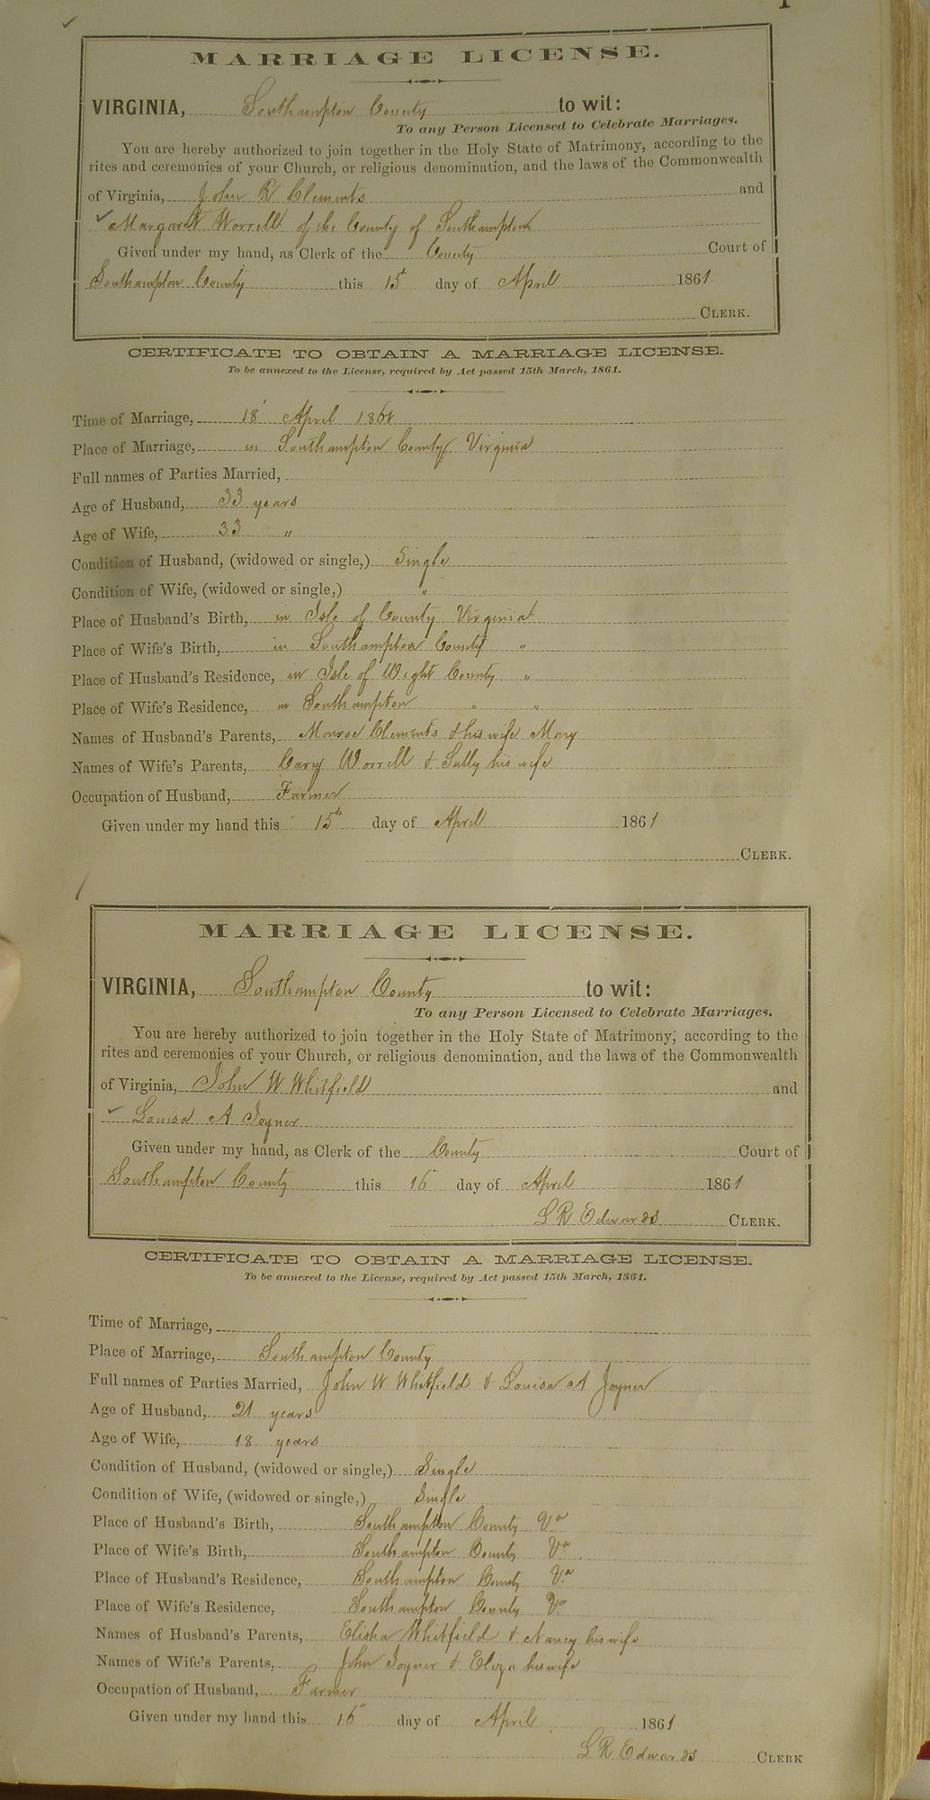 MARRIAGE LICENSE.
VIRGINIA, Southampton County to wit:
To any Person Licensed to Celebrate Marriages.
You are hereby authorized to join together in the Holy State of Matrimony, according to the
rites and ceremonies of your Church, or religious denomination, and the laws of the Commonwealth
of Virginia, John R Clements and
Margaret Worrell of the County of Southampton
Given under my hand, as Clerk of the County Court of
Southampton County this 15t day of April 1861
CLERK.
CERTIFICATE TO OBTAIN A MARRIAGE LICENSE.
To be annexed to the License, required by Act passed 15th March, 1861.
Time of Marriage, 18 April 1861
Place of Marriage, in Southampton County Virginia
Full names of Parties Married,
Age of Husband, 33 years
Age of Wife, 33 "
Condition of Husband, (widowed or single,) Single
Condition of Wife, (widowed or single,) "
Place of Husband's Birth, in Isle of County Virginia
Place of Wife's Birth, in Southampton County "
Place of Husband's Residence, in Isle of Wight County "
Place of Wife's Residence, in Southampton " "
Names of Husband's Parents, Monroe Clements & his wife Mary
Names of Wife's Parents, Cary Worrell & Sally his wife
Occupation of Husband, Farmer
Given under my hand this 15th day of April 1861
CLERK.
MARRIAGE LICENSE.
VIRGINIA, Southampton County to wit:
To any Person Licensed to Celebrate Marriages.
You are hereby authorized to join together in the Holy State of Matrimony, according to the
rites and ceremonies of your Church, or religious denomination, and the laws of the Commonwealth
of Virginia, John W Whitfield and
Louisa A Joyner
Given under my hand, as Clerk of the County Court of
Southampton County this 16 day of April 1861
L R Edwards CLERK.
CERTIFICATE TO OBTAIN A MARRIAGE LICENSE.
To be annexed to the License, required by Act passed 15th March, 1861.
Time of Marriage,
Place of Marriage, Southampton County
Full names of Parties Married, John W Whitfield & Louisa A Joyner
Age of Husband, 21 years
Age of Wife, 18 years
Condition of Husband, (widowed or single,) Single
Condition of Wife, (widowed or single,) Single
Place of Husband's Birth, Southampton County Va
Place of Wife's Birth, Southampton County Va
Place of Husband's Residence, Southampton County Va
Place of Wife's Residence, Southampton County Va
Names of Husband's Parents, Elisha Whitfield & Nancy his wife
Names of Wife's Parents, John Joyner & Eliza his wife
Occupation of Husband, Farmer
Given under my hand this 16 day of April 1861
L R Edwards CLERK